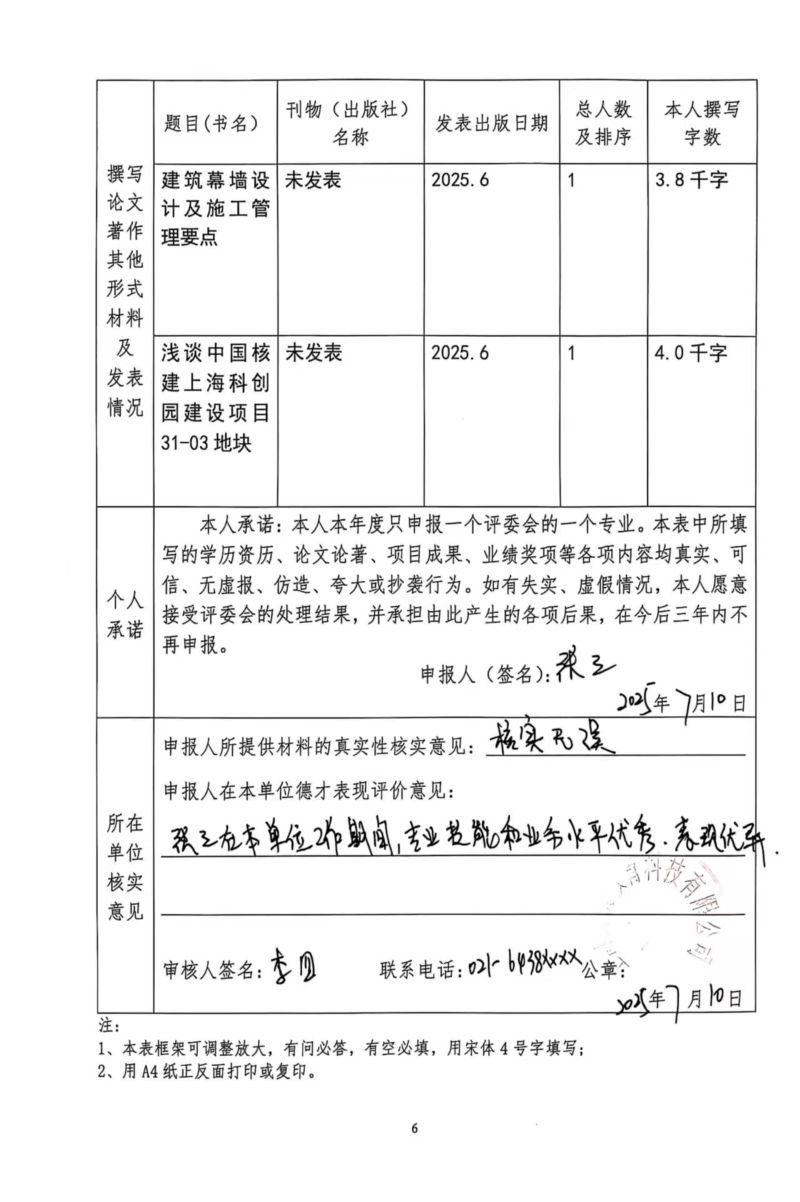 题目(书名)
刊物（出版社）
名称
发表出版日期
总人数
及排序
本人撰写
字数
撰写
论文
著作
其他
形式
材料
及
发表
情况
建筑幕墙设
计及施工管
理要点
未发表
2025.6
1
3.8千字
浅谈中国核
建上海科创
园建设项目
31-03地块
未发表
2025.6
1
4.0千字
个人
承诺
本人承诺：本人本年度只申报一个评委会的一个专业。本表中所填
写的学历资历、论文论著、项目成果、业绩奖项等各项内容均真实、可
信、无虚报、仿造、夸大或抄袭行为。如有失实、虚假情况，本人愿意
接受评委会的处理结果，并承担由此产生的各项后果，在今后三年内不
再申报。
申报人（签名）：张三
2025年7月10日
所在
单位
核实
意见
申报人所提供材料的真实性核实意见：核实无误
申报人在本单位德才表现评价意见：
张三在本单位工作期间，专业技能和业务水平优秀.表现优异.
科技有限公司
审核人签名：李四 联系电话：021-6438xxxx 公章：
2025年7月10日
注：
1、本表框架可调整放大，有问必答，有空必填，用宋体4号字填写；
2、用A4纸正反面打印或复印。
6